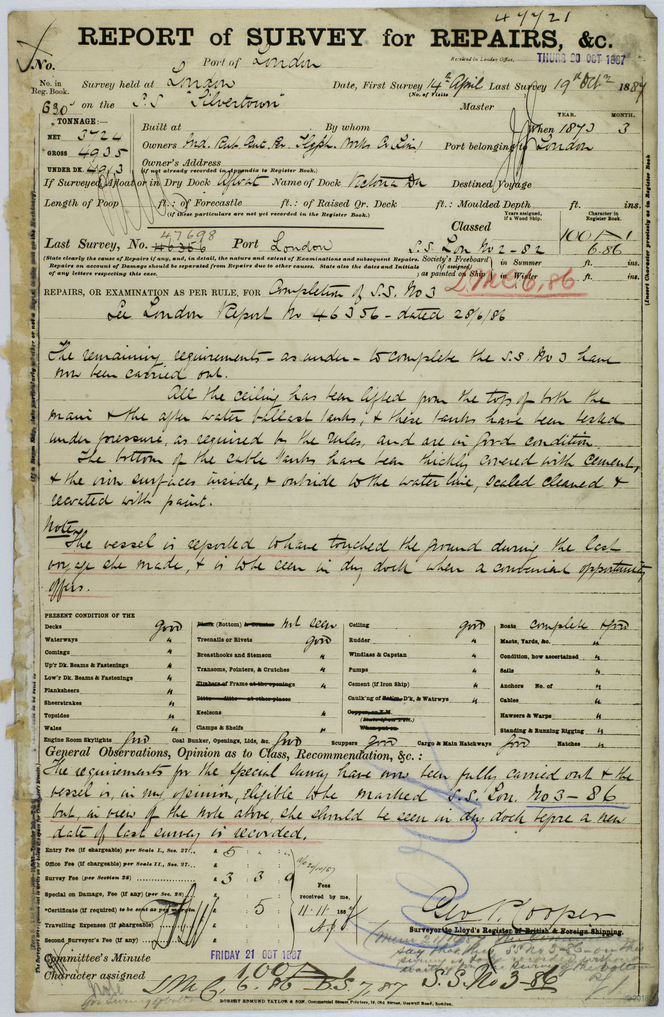 47721
REPORT of SURVEY for REPAIRS, &c.
No.
Port of London
Received in London Office, THURS 20 OCT 1887
No. in Reg. Book.
Survey held at London
Date, First Survey 14th April Last Survey 19th Octr 1887
(No. of Visits
630 on the S.S. "Silvertown"
Master
TONNAGE:
NET 3724
GROSS 4935
UNDER DK. 4913
Built at
By whom
When 1873 3
YEAR. MONTH.
Owners Ind. Rub. Gut. Per. Telegh. Works Co. Lim.
Port belonging to London
Owner's Address
(if not already recorded in Appendix to Register Book.)
If Surveyed Afloat or in Dry Dock Afloat Name of Dock Victoria Dk
Destined Voyage
Length of Poop ft.: of Forecastle ft.: of Raised Qr. Deck ft.: Moulded Depth ft. ins.
(if these particulars are not yet recorded in the Register Book.)
Classed
Years assigned, if a Wood Ship.
Character in Register Book.
100 A 1
6.86
Last Survey, No. 46356 47698 Port London
S.S. Lon. No 2-82
(State clearly the cause of Repairs if any, and, in detail, the nature and extent of Examinations and subsequent Repairs.
Repairs on account of Damage should be separated from Repairs due to other causes. State also the dates and Initials
of any letters respecting this case.)
Society's Freeboard (if assigned) as painted on Ship
in Summer ft. ins.
in Winter ft. ins.
(Insert Character precisely as in Register Book
L.M.C. 6,86
REPAIRS, OR EXAMINATION AS PER RULE, FOR Completion of S.S. No 3
See London Report No 46356 - dated 28/6/86
The remaining requirements - as under - to complete the S.S. No 3 have
now been carried out.
All the ceiling has been lifted from the top of both the
main & the after water ballast tanks, & these tanks have been tested
under pressure, as required by the rules, and are in good condition.
The bottom of the cable tanks have been thickly covered with cement,
& the iron surfaces inside, & outside to the water line, scaled cleaned &
recoated with paint.
Note
The vessel is reported to have touched the ground during the last
voyage she made, & is to be seen in dry dock when a convenient opportunity
offers.
PRESENT CONDITION OF THE
Decks good
Waterways "
Comings "
Up'r Dk. Beams & Fastenings "
Low'r Dk. Beams & Fastenings "
Planksheers "
Sheerstrakes "
Topsides "
Wales "
Plank (Bottom) & Counter not seen
Treenails or Rivets good
Breasthooks and Stemson "
Transoms, Pointers, & Crutches "
Timbers of Frame at the openings "
Ditto ditto at other places
Keelsons "
Clamps & Shelfs "
Ceiling good
Rudder "
Windlass & Capstan "
Pumps "
Cement (if Iron Ship) "
Caulk'ng of D'k, & Watrwys "
Boats complete & good
Masts, Yards, &c. "
Condition, how ascertained "
Sails "
Anchors No. of "
Cables "
Hawsers & Warps "
Standing & Running Rigging "
Engine Room Skylights good Coal Bunker, Openings, Lids, &c. good Scuppers good Cargo & Main Hatchways good Hatches "
General Observations, Opinion as to Class, Recommendation, &c.:
The requirements for the special survey have now been fully carried out & the
vessel is, in my opinion, eligible to be marked S.S. Lon. No 3-86
but, in view of the note above, she should be seen in dry dock before a new
date of last survey is recorded.
Entry Fee (if chargeable) per Scale I., Sec. 27 £ 5
Office Fee (if chargeable) per Scale II., Sec. 27 £
Survey Fee (per Section 28) £ 3 3 0
Special on Damage, Fee (if any) (per Sec. 28) £
*Certificate (if required) to be sent as per margin 5
Travelling Expenses (if chargeable) £
Second Surveyor's Fee (if any) £
Fees received by me,
11.11.1887
Geo. R. Cooper
Surveyor to Lloyd's Register of British & Foreign Shipping.
Committee's Minute FRIDAY 21 OCT 1887
Character assigned 100 A 1
LMC 6.86 B.S. 7.87 S.S. No 3-86
ROBERT EDMUND TAYLOR & SON, Commercial Steam Printers, 19, Old Street, Goswell Road, London.